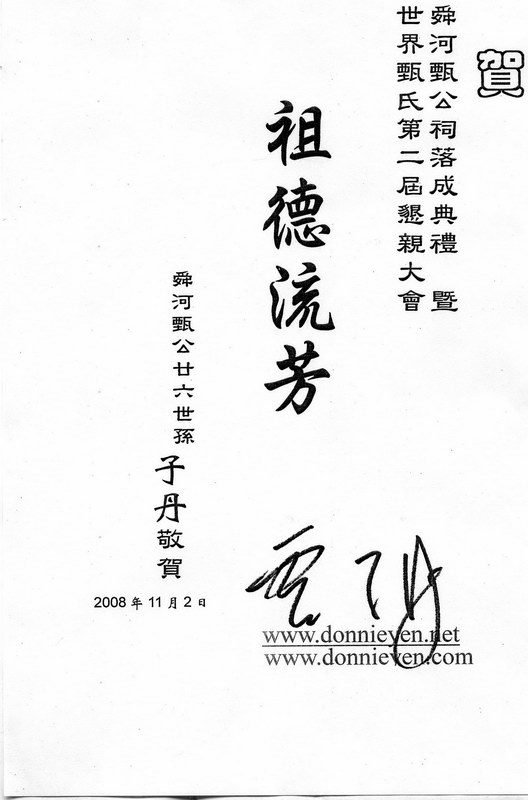 賀
舜河甄公祠落成典禮 暨
世界甄氏第二屆懇親大會
祖德流芳
舜河甄公廿六世孫
子丹敬賀
2008年11月2日
www.donnieyen.net
www.donnieyen.com